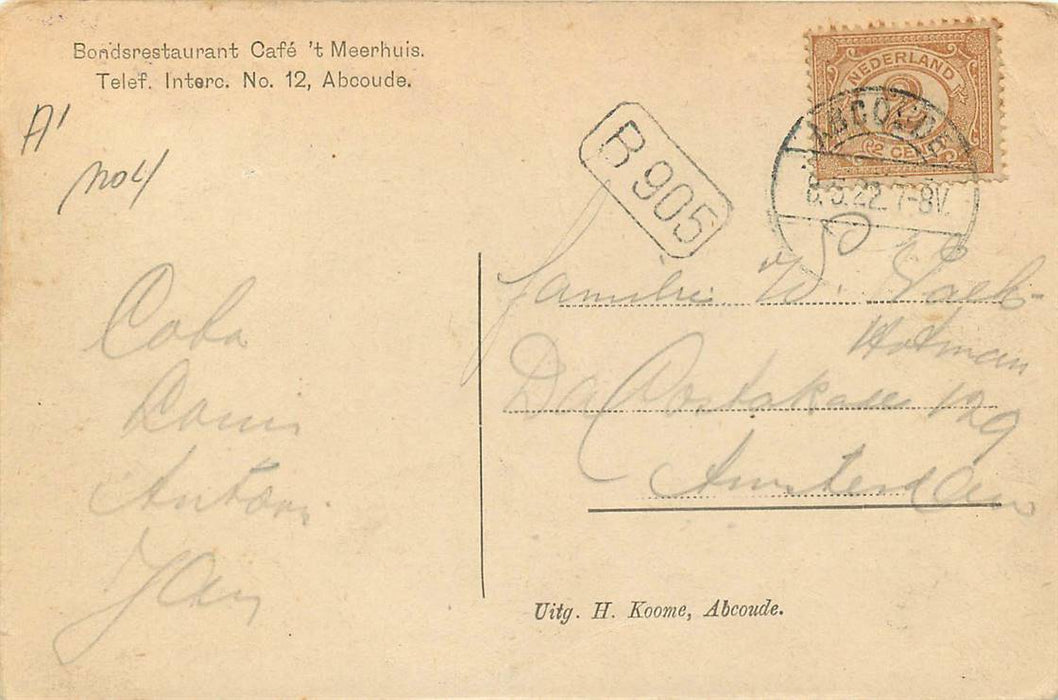 Bondsrestaurant Café 't Meerhuis.
Telef. Interc. No. 12, Abcoude.
A'
no4
B 905
NEDERLAND
2
2 CENT
ABCOUDE
6.5.22.7-8V.
Familie W.
Hofman
Da Costakade 129
Amsterdam
Coba
Louis
Anton
Jan
Uitg. H. Koome, Abcoude.